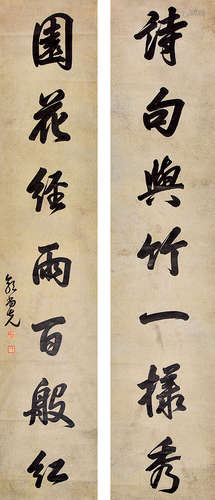 詩句與竹一樣秀
園花經雨百般紅